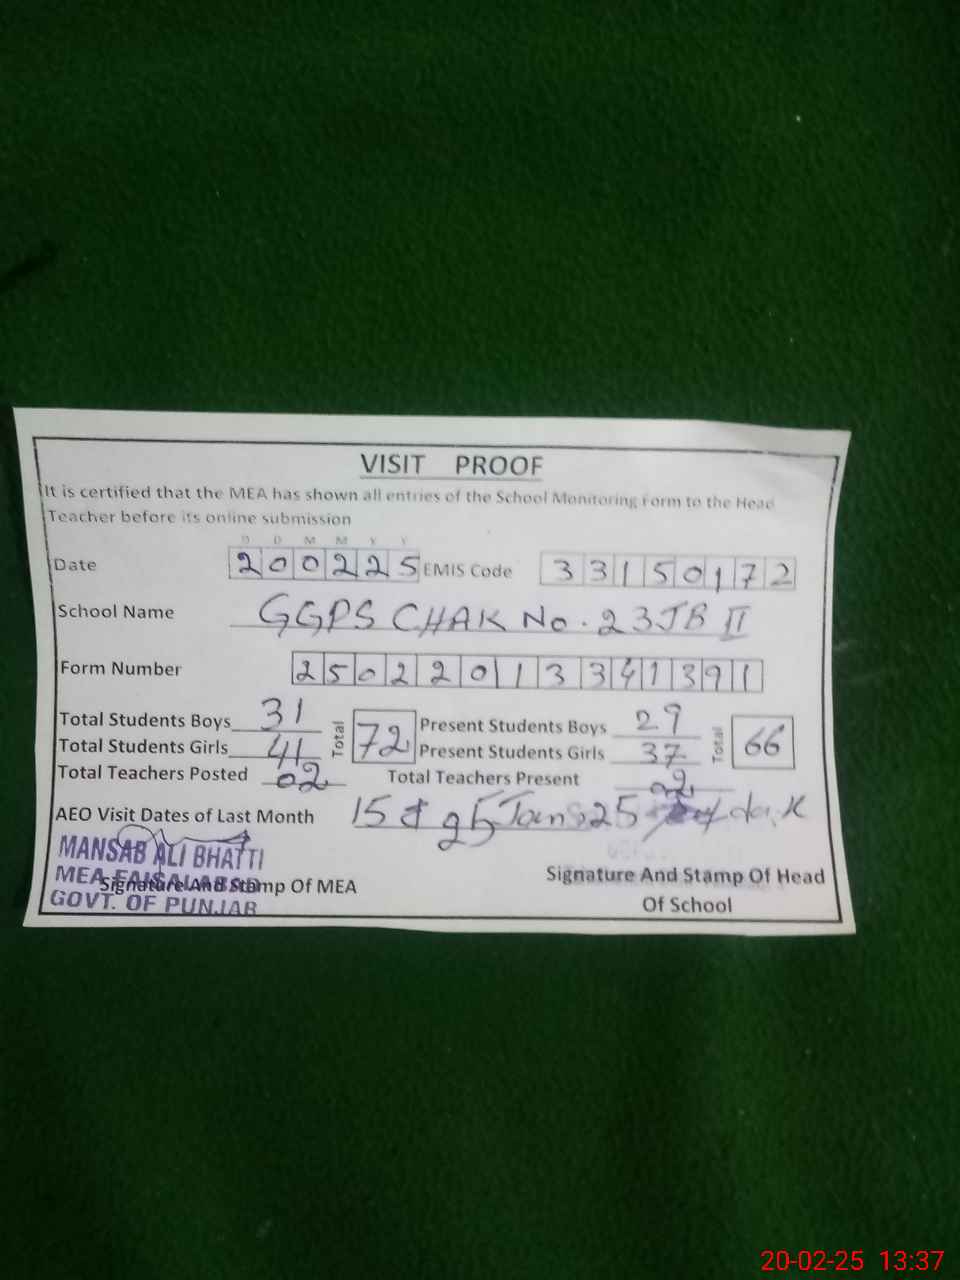 VISIT PROOF
It is certified that the MEA has shown all entries of the School Monitoring Form to the Head
Teacher before its online submission
D D M M Y Y
Date 200225 EMIS Code 33150172
School Name GGPS CHAK No. 23JB II
Form Number 25022013341391
Total Students Boys 31 Total 72 Present Students Boys 29 Total 66
Total Students Girls 41 Present Students Girls 37
Total Teachers Posted 02 Total Teachers Present 02
AEO Visit Dates of Last Month 15 & 25 Jan 25
MANSAB ALI BHATTI
MEA FAISALABAD
GOVT. OF PUNJAB
Signature And Stamp Of MEA
Signature And Stamp Of Head
Of School
20-02-25 13:37